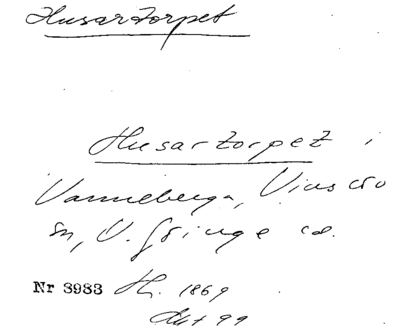 Husartorpet
Husartorpet i
Vanneberga, Vinslöv
sn, V. Göinge hd.
Nr 3983 H. 1869
Akt 99